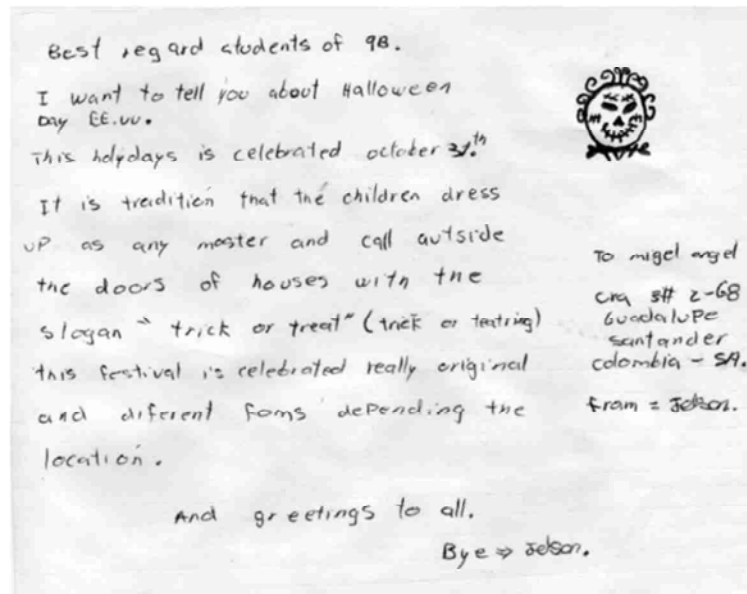 Best regard students of 9B.
I want to tell you about Halloween
Day EE.UU.
This holydays is celebrated october 31.th
It is tradition that the children dress
UP as any moster and call autside
the doors of houses with the
slogan " trick or treat" (trick or teatring)
this festival is celebrated really original
and diferent foms depending the
location.
And greetings to all.
Bye ⇒ Jelson.
To migel angel
cra 3# 2-68
Guadalupe
santander
colombia - SA.
from = Jelson.